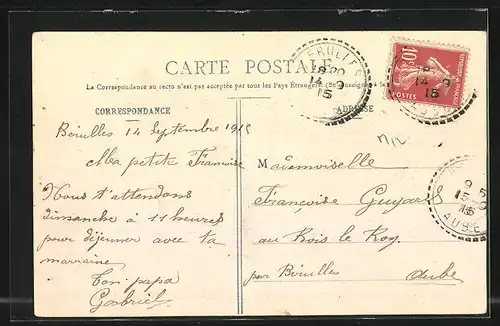 CARTE POSTALE
La Correspondance au recto n'est pas acceptée par tous les Pays Étrangers. (Se renseigner à la
CORRESPONDANCE
ADRESSE
8 20
14 9
15
10c
POSTES
14 9
15
Bérulles 14 Septembre 1915
Ma petite Françoise
Nous t'attendons
dimanche à 11 heures
pour déjeuner avec ta
marraine
Ton papa
Gabriel
Mademoiselle
Françoise Guyard
au Bois le Roy
par Bérulles
Aube
15
AUBE